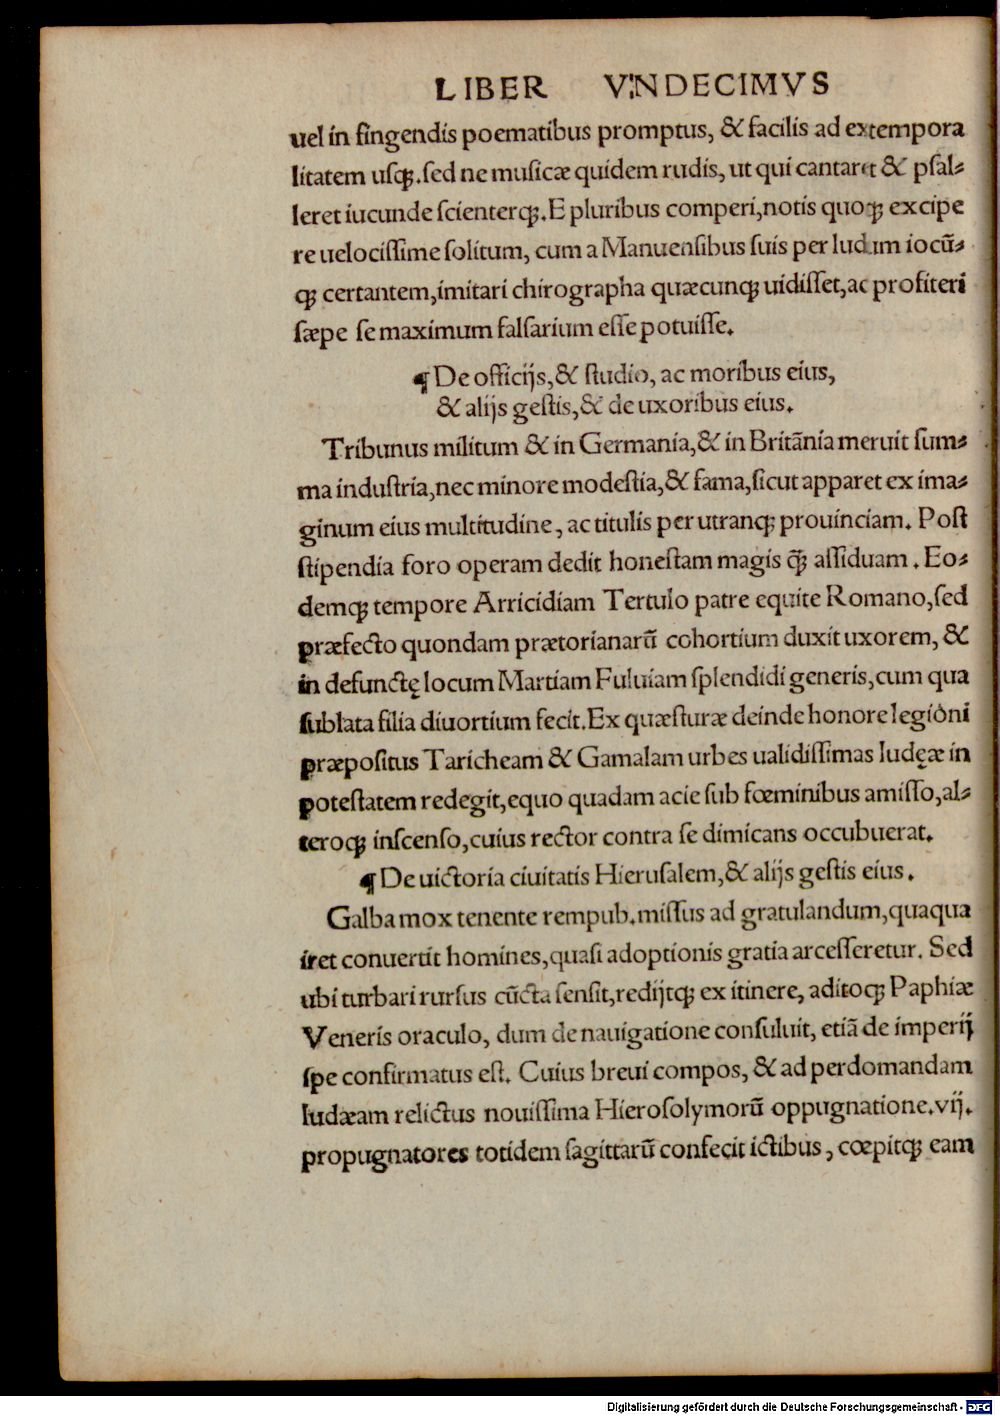 LIBER VNDECIMVS
uel in fingendis poematibus promptus, & facilis ad extempora
litatem usq;.sed ne musicæ quidem rudis, ut qui cantaret & psal-
leret iucunde scienterq;.E pluribus comperi,notis quoq; excipe
re uelocissime solitum, cum a Manuensibus suis per ludum iocū-
q; certantem,imitari chirographa quæcunq; uidisset,ac profiteri
sæpe se maximum falsarium esse potuisse.
¶ De officijs,& studio, ac moribus eius,
& alijs gestis,& de uxoribus eius.
Tribunus militum & in Germania,& in Britānia meruit sum-
ma industria,nec minore modestia,& fama,sicut apparet ex ima-
ginum eius multitudine, ac titulis per utranq; prouinciam. Post
stipendia foro operam dedit honestam magis q̃ assiduam . Eo-
demq; tempore Arricidiam Tertulo patre equite Romano,sed
præfecto quondam prætorianarū cohortium duxit uxorem, &
in defunctę locum Martiam Fuluiam splendidi generis,cum qua
sublata filia diuortium fecit.Ex quæsturæ deinde honore legioni
præpositus Taricheam & Gamalam urbes ualidissimas Iudęæ in
potestatem redegit,equo quadam acie sub fœminibus amisso,al-
teroq; inscenso,cuius rector contra se dimicans occubuerat.
¶ De uictoria ciuitatis Hierusalem,& alijs gestis eius .
Galba mox tenente rempub.missus ad gratulandum,quaqua
iret conuertit homines,quasi adoptionis gratia arcesseretur. Sed
ubi turbari rursus cūcta sensit,redijtq; ex itinere, aditoq; Paphiæ
Veneris oraculo, dum de nauigatione consuluit, etiā de imperij
spe confirmatus est. Cuius breui compos, & ad perdomandam
Iudæam relictus nouissima Hierosolymorū oppugnatione.vij.
propugnatores totidem sagittarū confecit ictibus, cœpitq; eam
Digitalisierung gefördert durch die Deutsche Forschungsgemeinschaft - DFG